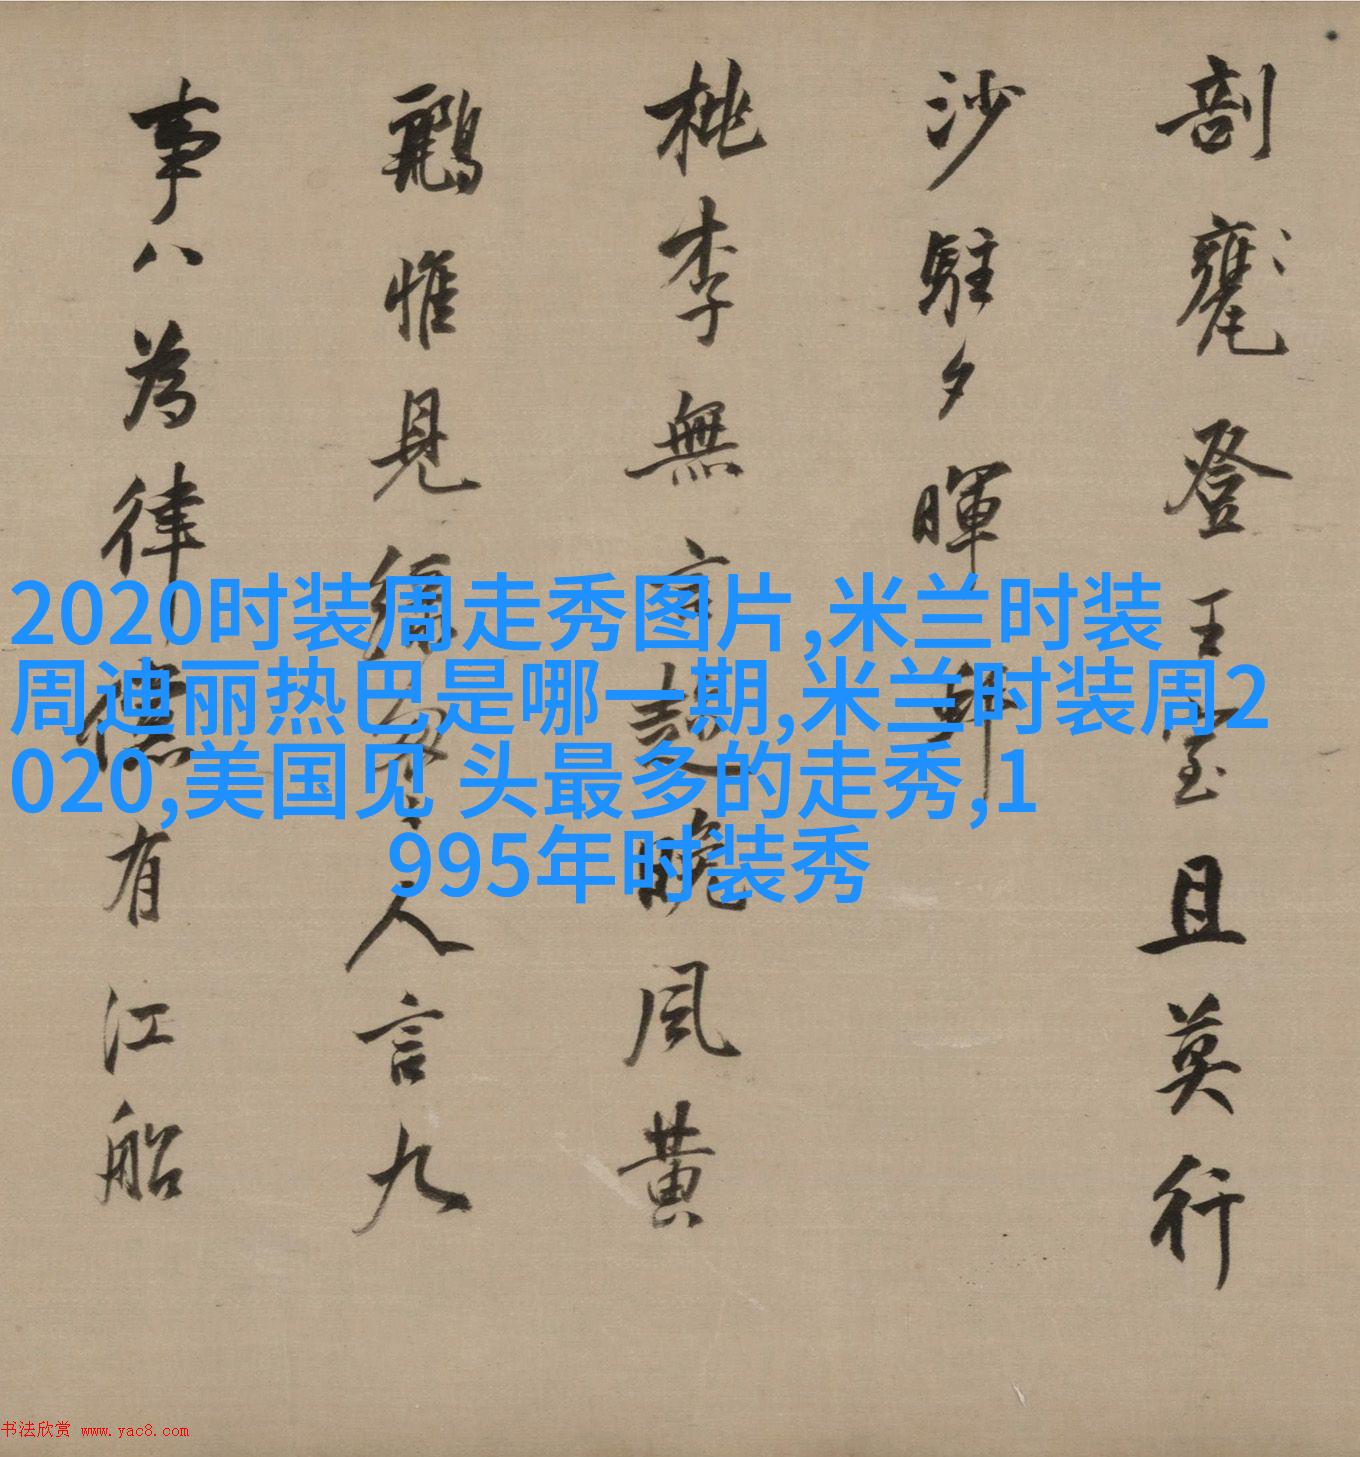 剖甕登王室且莫行
沙駐夕暉
桃李無言晚風黃
鸝惟見人言九
事八為律有江船
2020时装周走秀图片,米兰时装
周迪丽热巴是哪一期,米兰时装周2
020,美国见 头最多的走秀,1
995年时装秀
书法欣赏 www.yac8.com